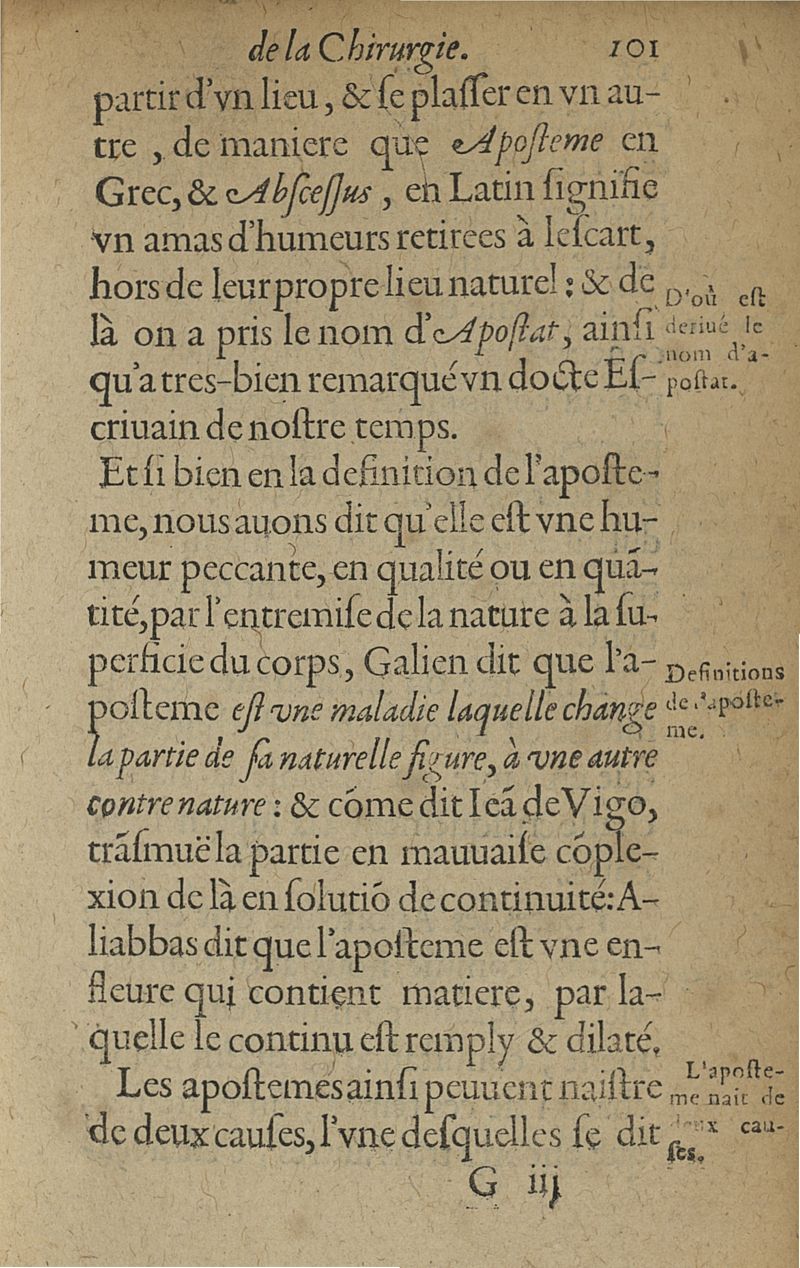 de la Chirurgie. 101
partir d'vn lieu, & ſe plaſſer en vn au-
tre, de maniere que Apoſteme en
Grec, & Abſceſſus, en Latin ſignifie
vn amas d'humeurs retirees à leſcart,
hors de leur propre lieu naturel : & de
là on a pris le nom d'Apoſtat, ainſi
qu'a tres-bien remarqué vn docte Eſ-
criuain de noſtre temps.
D'où eſt
deriué le
nom d'a-
poſtat.
Et ſi bien en la definition de l'apoſte-
me, nous auons dit qu'elle eſt vne hu-
meur peccante, en qualité ou en quã-
tité, par l'entremiſe de la nature à la ſu-
perficie du corps, Galien dit que l'a-
poſteme eſt vne maladie laquelle change
la partie de ſa naturelle figure, à vne autre
contre nature : & cõme dit Ieã de Vigo,
trãſmuë la partie en mauuaiſe cõple-
xion de là en ſolutiõ de continuité: A-
liabbas dit que l'apoſteme eſt vne en-
fleure qui contient matiere, par la-
quelle le continu eſt remply & dilaté.
Definitions
de l'apoſte-
me.
Les apoſtemes ainſi peuuent naiſtre
de deux cauſes, l'vne deſquelles ſe dit
L'apoſte-
me nait de
deux cau-
ſes.
G iij